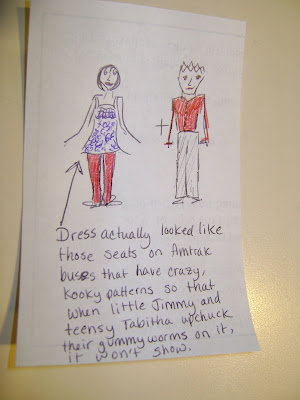 +
Dress actually looked like
those seats on Amtrak
buses that have crazy,
kooky patterns so that
when little Jimmy and
teensy Tabitha upchuck
their gummyworms on it,
it won't show.